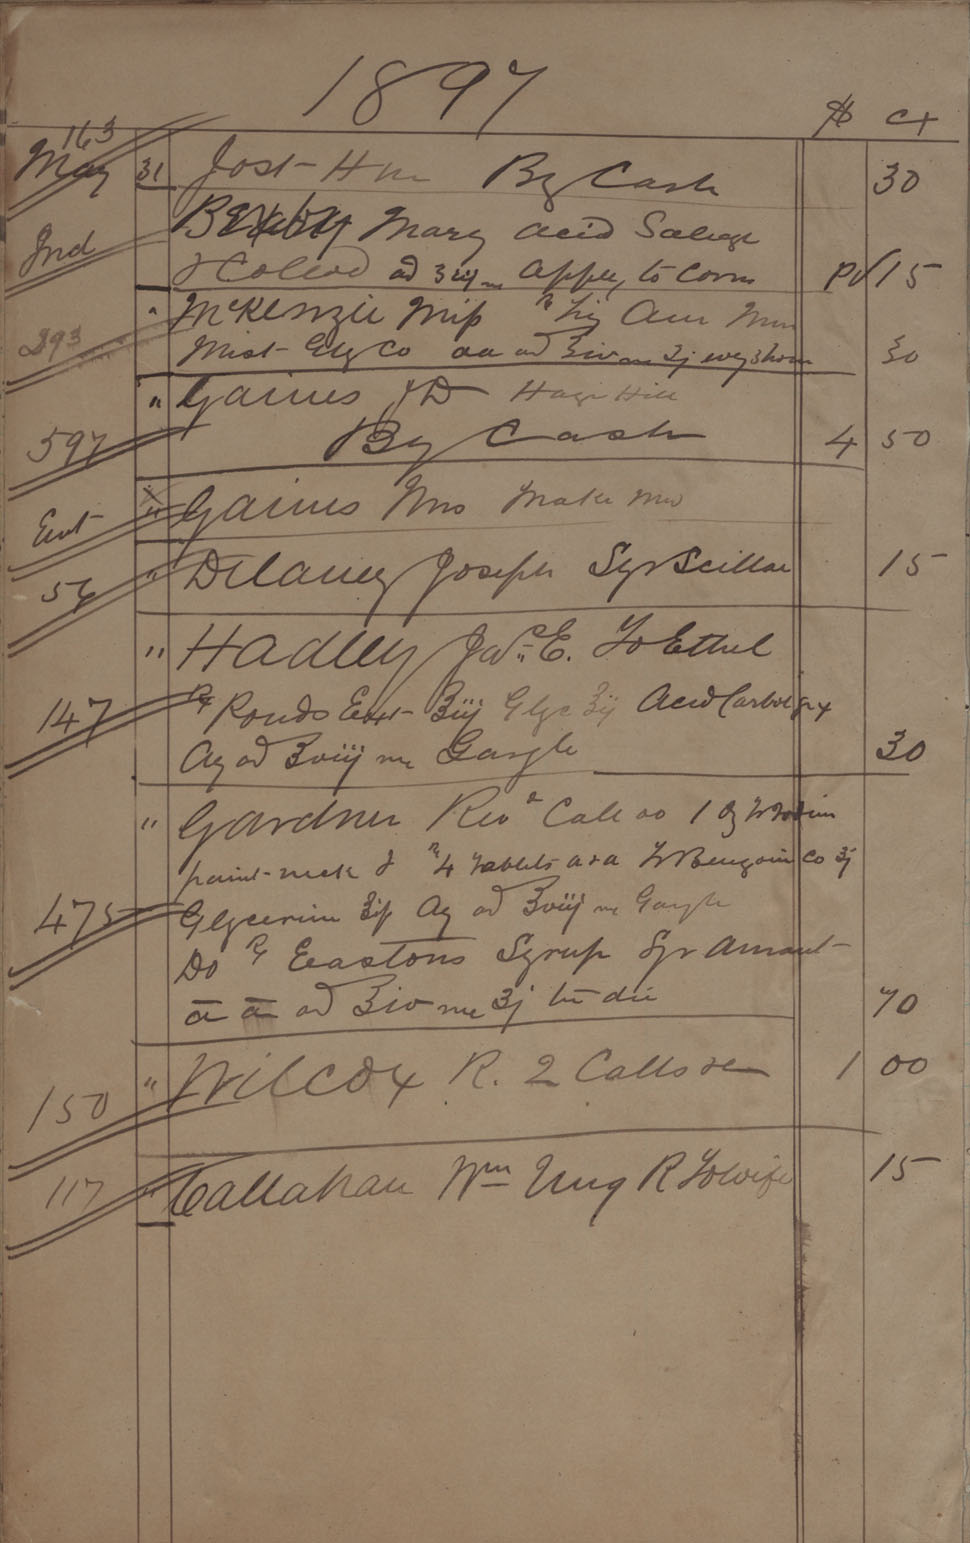 1897
$ ct
163
May 31 Jost Hm By Cash 30
Ind Bexby Mary Acid Salicyl
& Collod ad ʒiij m apply to corns pd 15
293 " McKenzie Miss ℞ Liq Am
Mist Gly Co aa ad ℥iv m ʒj evy 3 hour 30
" Gaines J D Hill
597 By Cash 4 50
Ent " Gaines Mrs make
56 " Delaney Joseph Syr Scillae 15
" Hadley Jas. E. To Ethel
147 ℞ Ponds Ext ʒiij Glyc ʒij Acid Carbol gr x
Aq ad ℥viij m Gargle 30
" Gardner Rev Call 00 1 oz Tr Iodin
paint neck & ℞ 4 Tablets a & a Tr Benzoin Co ʒj
475 Glycerin Aq ad ℥viij m Gargle
Do ℞ Eastons Syrup Syr Aurant
āā ad ℥iv m ʒj die 70
150 " Wilcox R. 2 Calls 1 00
117 " Callahan Wm Ung R To wife 15